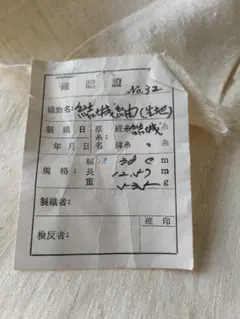 確認證 No.32
織物名：結城紬(生地)
製織日 原 経糸 結城 糸
糸：
年月日 名 緯糸 〃 糸
幅 38 cm
規格：長 12.47 m
重 g
製織者：
検印
檢反者：